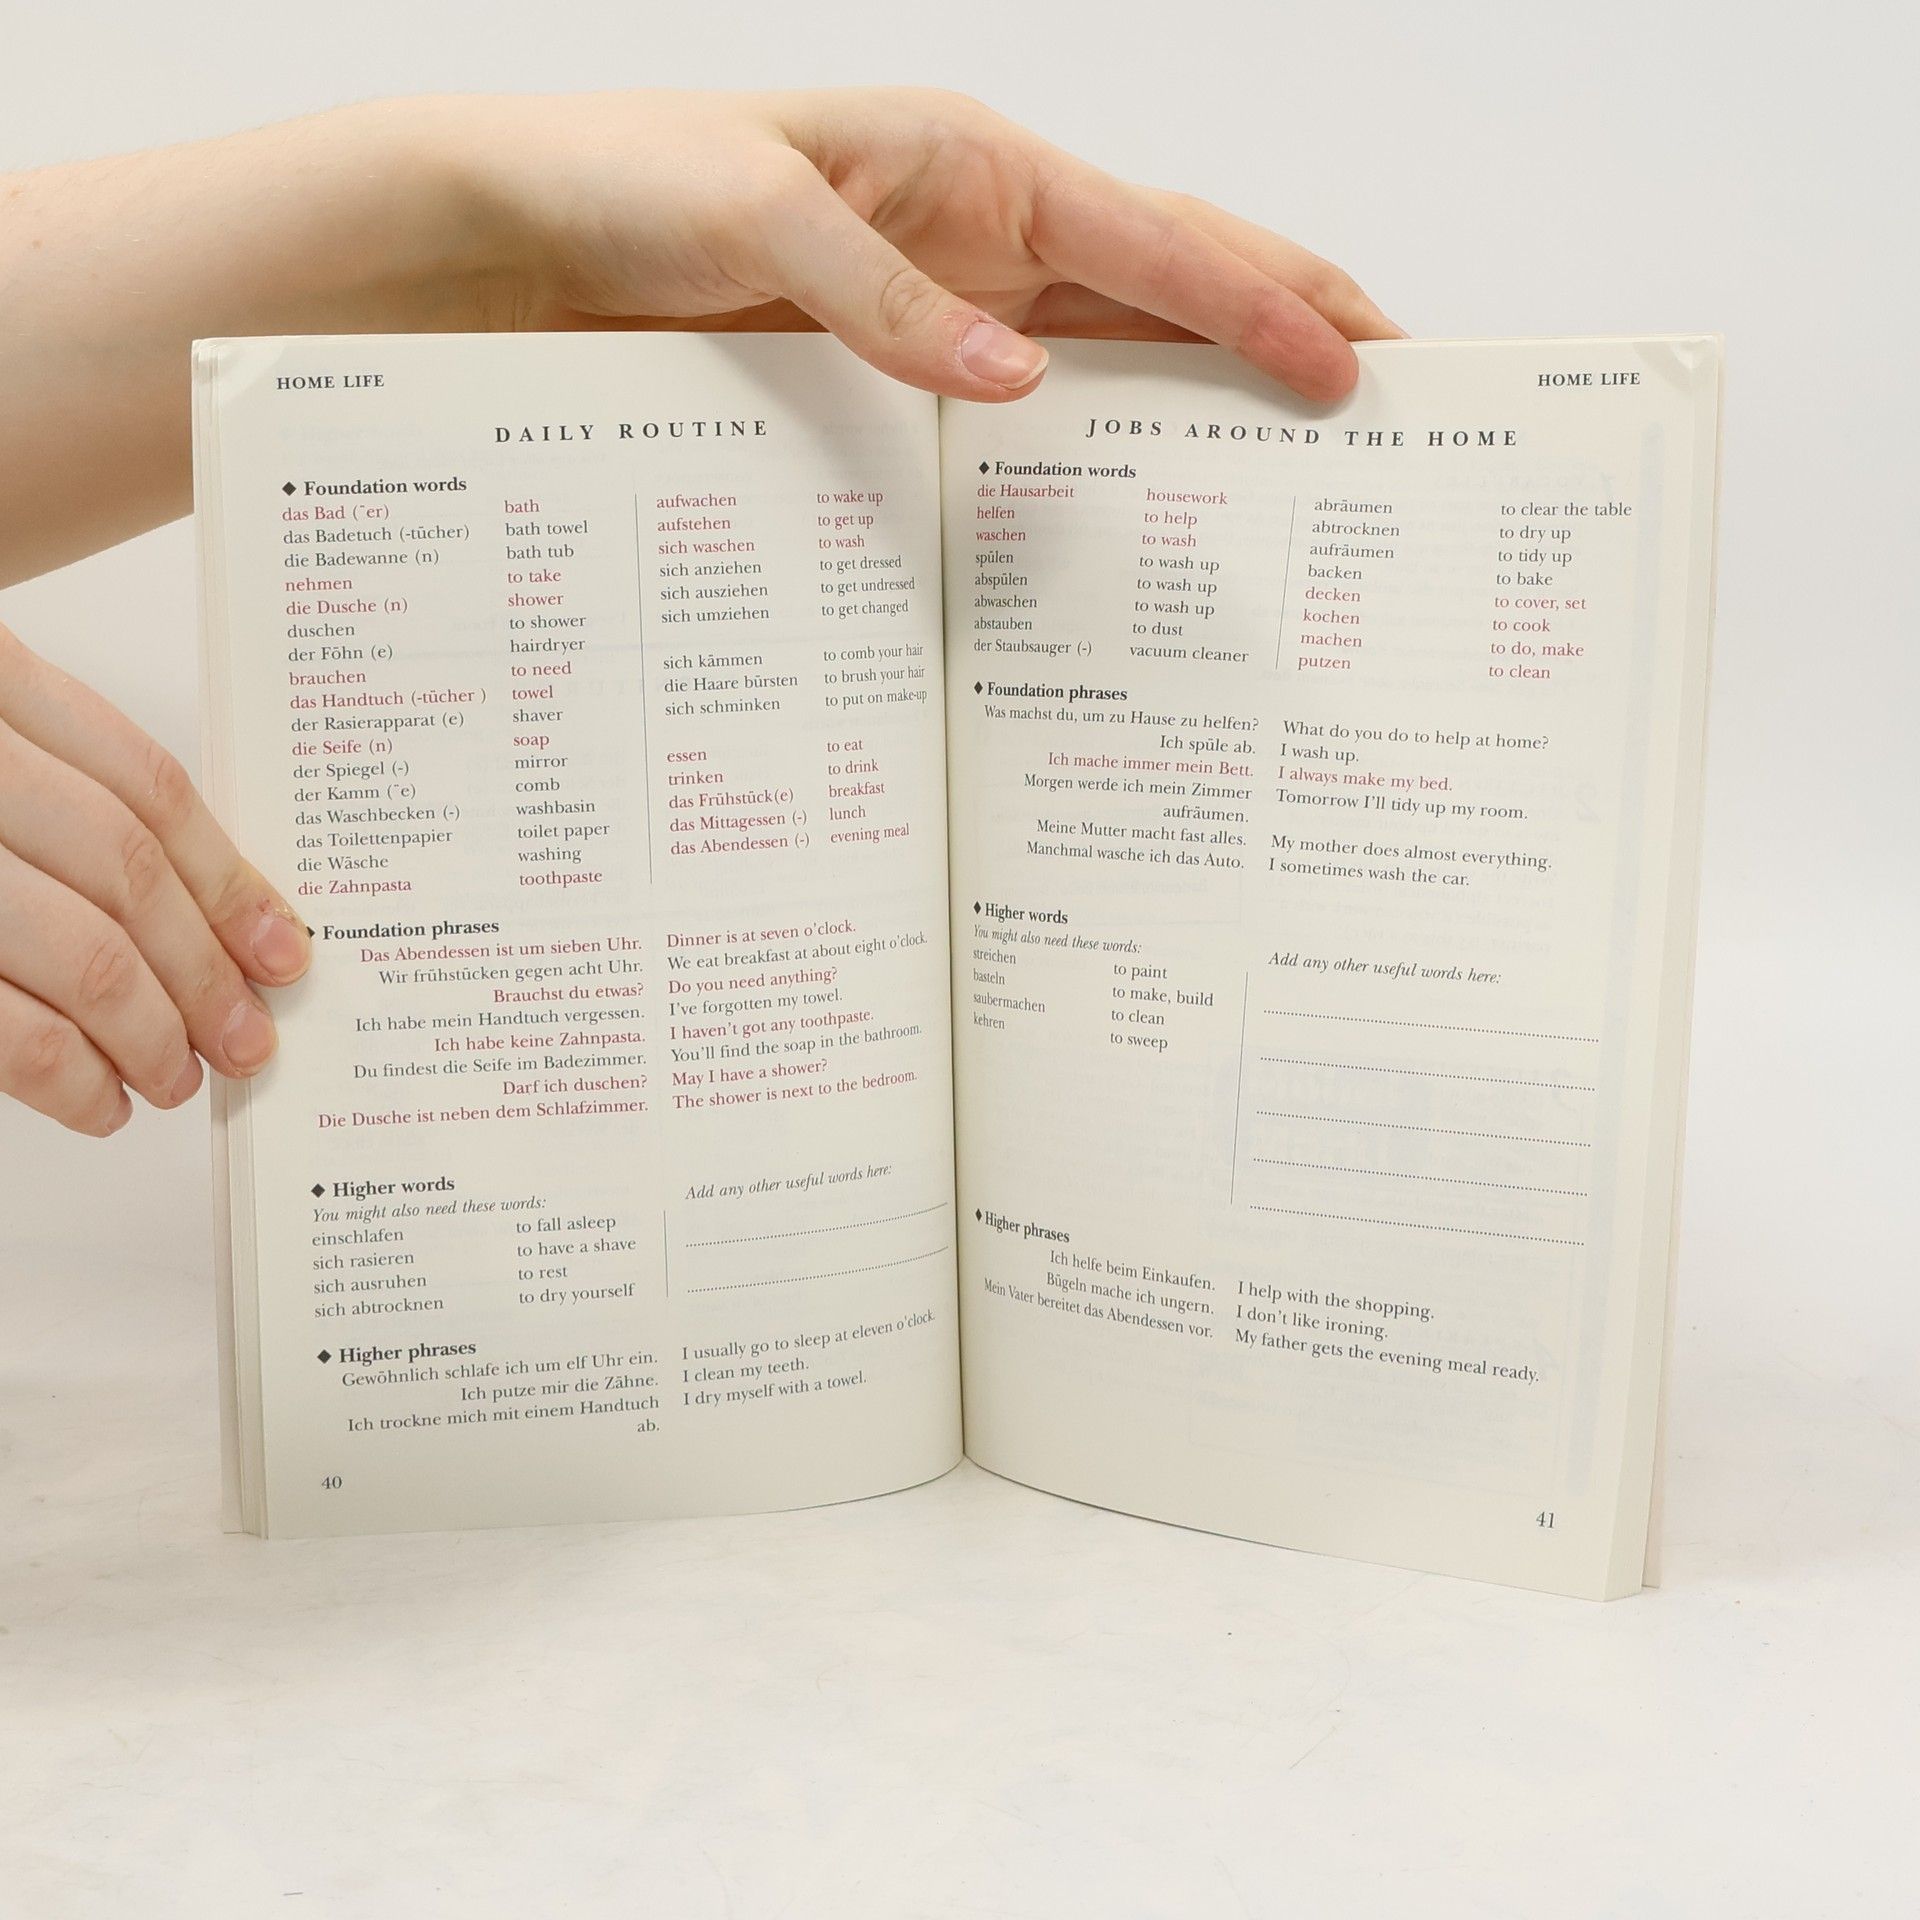 HOME LIFE
DAILY ROUTINE
◆ Foundation words
das Bad (¨er) bath
das Badetuch (-tücher) bath towel
die Badewanne (n) bath tub
nehmen to take
die Dusche (n) shower
duschen to shower
der Föhn (e) hairdryer
brauchen to need
das Handtuch (-tücher ) towel
der Rasierapparat (e) shaver
die Seife (n) soap
der Spiegel (-) mirror
der Kamm (¨e) comb
das Waschbecken (-) washbasin
das Toilettenpapier toilet paper
die Wäsche washing
die Zahnpasta toothpaste
aufwachen to wake up
aufstehen to get up
sich waschen to wash
sich anziehen to get dressed
sich ausziehen to get undressed
sich umziehen to get changed
sich kämmen to comb your hair
die Haare bürsten to brush your hair
sich schminken to put on make-up
essen to eat
trinken to drink
das Frühstück(e) breakfast
das Mittagessen (-) lunch
das Abendessen (-) evening meal
◆ Foundation phrases
Das Abendessen ist um sieben Uhr. Dinner is at seven o'clock.
Wir frühstücken gegen acht Uhr. We eat breakfast at about eight o'clock.
Brauchst du etwas? Do you need anything?
Ich habe mein Handtuch vergessen. I've forgotten my towel.
Ich habe keine Zahnpasta. I haven't got any toothpaste.
Du findest die Seife im Badezimmer. You'll find the soap in the bathroom.
Darf ich duschen? May I have a shower?
Die Dusche ist neben dem Schlafzimmer. The shower is next to the bedroom.
◆ Higher words
You might also need these words:
einschlafen to fall asleep
sich rasieren to have a shave
sich ausruhen to rest
sich abtrocknen to dry yourself
Add any other useful words here:
◆ Higher phrases
Gewöhnlich schlafe ich um elf Uhr ein. I usually go to sleep at eleven o'clock.
Ich putze mir die Zähne. I clean my teeth.
Ich trockne mich mit einem Handtuch I dry myself with a towel.
ab.
40
HOME LIFE
JOBS AROUND THE HOME
◆ Foundation words
die Hausarbeit housework
helfen to help
waschen to wash
spülen to wash up
abspülen to wash up
abwaschen to wash up
abstauben to dust
der Staubsauger (-) vacuum cleaner
abräumen to clear the table
abtrocknen to dry up
aufräumen to tidy up
backen to bake
decken to cover, set
kochen to cook
machen to do, make
putzen to clean
◆ Foundation phrases
Was machst du, um zu Hause zu helfen? What do you do to help at home?
Ich spüle ab. I wash up.
Ich mache immer mein Bett. I always make my bed.
Morgen werde ich mein Zimmer Tomorrow I'll tidy up my room.
aufräumen.
Meine Mutter macht fast alles. My mother does almost everything.
Manchmal wasche ich das Auto. I sometimes wash the car.
◆ Higher words
You might also need these words:
streichen to paint
basteln to make, build
saubermachen to clean
kehren to sweep
Add any other useful words here:
◆ Higher phrases
Ich helfe beim Einkaufen. I help with the shopping.
Bügeln mache ich ungern. I don't like ironing.
Mein Vater bereitet das Abendessen vor. My father gets the evening meal ready.
41